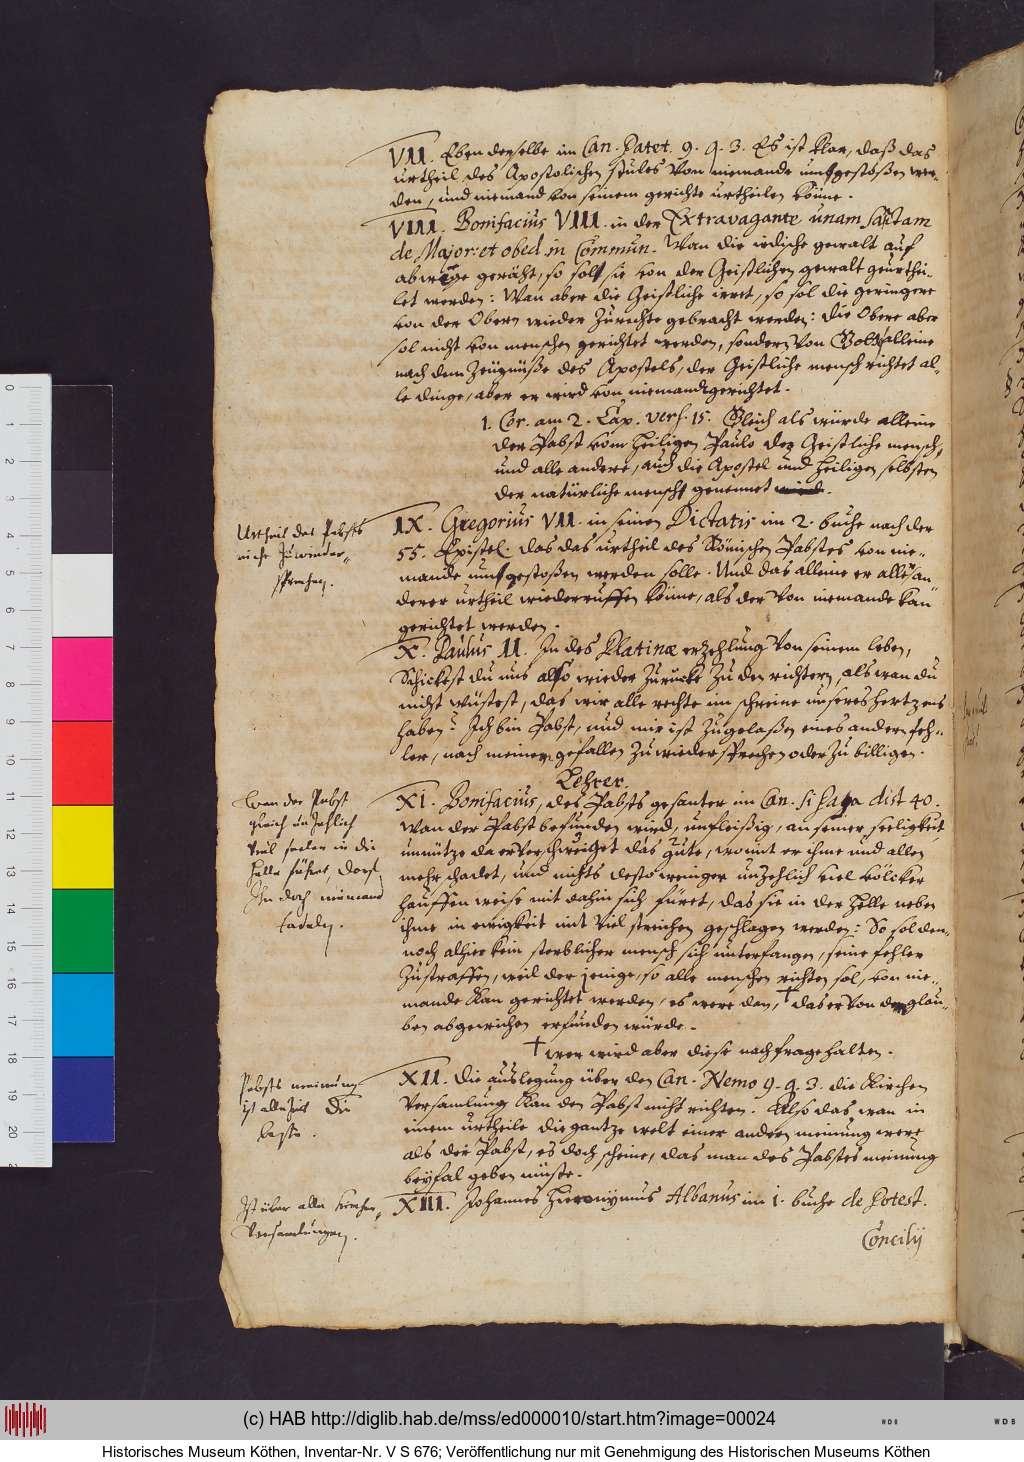 VII. Eben derselbe im Can. Patet. 9. q. 3. Es ist klar, daß das
urtheil des Apostolischen stules von niemande umbgestoßen wer-
den, und niemand von seinem gerichte urtheilen könne.
VIII. Bonifacius VIII. in der Extravagante unam sanctam
de Major: et obed. in Commun. Wan die irdische gewalt auf
abwege geräht, so sol sie von der Geistlichen gewalt geurthei-
let werden: Wan aber die Geistliche irret, so sol die geringere
von der Obern wieder zurechte gebracht werden: die Obere aber
sol nicht von menschen gerichtet werden, sondern von Gott alleine
nach dem Zeügnüße des Apostels, der Geistliche mensch richtet al-
le dinge, aber er wird von niemand gerichtet.
1. Cor. am 2. Cap. vers. 15. Gleich als würde alleine
der Pabst vom heiligen Paulo der Geistliche mensch,
und alle andere, auch die Apostel und heiligen selbsten
der natürliche mensch genennet.
Urtheil des Pabsts
nicht zu wieder-
sprechen.
IX. Gregorius VII. in seinen Dictatis im 2. buche nach der
55. Epistel. das das urtheil des Römischen Pabstes von nie-
mande umbgestoßen werden solle. Und das alleine er alle an
derer urtheil wiederruffen könne, als der von niemande kan
gerichtet werden.
X. Paulus II. In des Platinæ erzehlung von seinem leben,
Schickest du uns also wieder zurücke zu den richtern, als wan du
nicht wüstest, das wir alle rechte im schreine unseres hertzens
haben? Ich bin Pabst, und mir ist zugelaßen eines andern feh-
ler, nach meinem gefallen zu wiedersprechen oder zu billigen.
Lehrer.
Wan der Pabst
gleich unzehlich
viel seelen in die
helle führet, darf
Ihn doch niemand
tadeln.
XI. Bonifacius, des Pabsts gesanter im Can. si Papa dist 40.
Wan der Pabst befunden wird, unfleißig, an seiner seeligkeit
unnütze da er verschweiget das gute, womit er ihme und allen
mehr schadet, und nichts desto weniger unzehlich viel völcker
hauffen weise mit dahin sich füret, das sie in der helle neben
ihme in ewigkeit mit viel streichen geschlagen werden: So sol den-
noch alhier kein sterblicher mensch sich unterfangen, seine fehler
zustraffen, weil der jenige, so alle menschen richten sol, von nie-
mande kan gerichtet werden, es were dan, † das er von dem glau-
ben abgewichen erfunden würde.
† wer wird aber diese nachfrage halten.
Pabsts meinung
ist allezeit die
beste.
XII. Die auslegung über den Can. Nemo 9. q. 3. die Kirchen
versamlung kan den Pabst nicht richten. Also das wan in
einem urtheile die gantze welt einer andern meinung were
als der Pabst, es doch scheine, das man des Pabstes meinung
beyfal geben müste.
Ist über alle kirchen
versamlungen.
XIII. Johannes Hieronymus Albanus im 1. buche de Potest.
Concilij
(c) HAB http://diglib.hab.de/mss/ed000010/start.htm?image=00024
Historisches Museum Köthen, Inventar-Nr. V S 676; Veröffentlichung nur mit Genehmigung des Historischen Museums Köthen